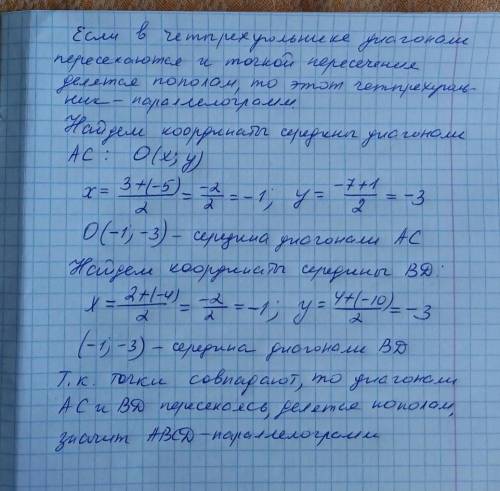 Если в четырехугольнике диагонали
пересекаются и точкой пересечения
делятся пополам, то этот четырехуголь-
ник - параллелограмм
Найдем координаты середины диагонали
AC: O(x; y)
x = \frac{3+(-5)}{2} = \frac{-2}{2} = -1; y = \frac{-7+1}{2} = -3
O(-1; -3) - середина диагонали AC
Найдем координаты середины BD:
x = \frac{2+(-4)}{2} = \frac{-2}{2} = -1; y = \frac{4+(-10)}{2} = -3
(-1; -3) - середина диагонали BD
Т.к. точки совпадают, то диагонали
AC и BD пересекаясь, делятся пополам,
значит ABCD - параллелограмм